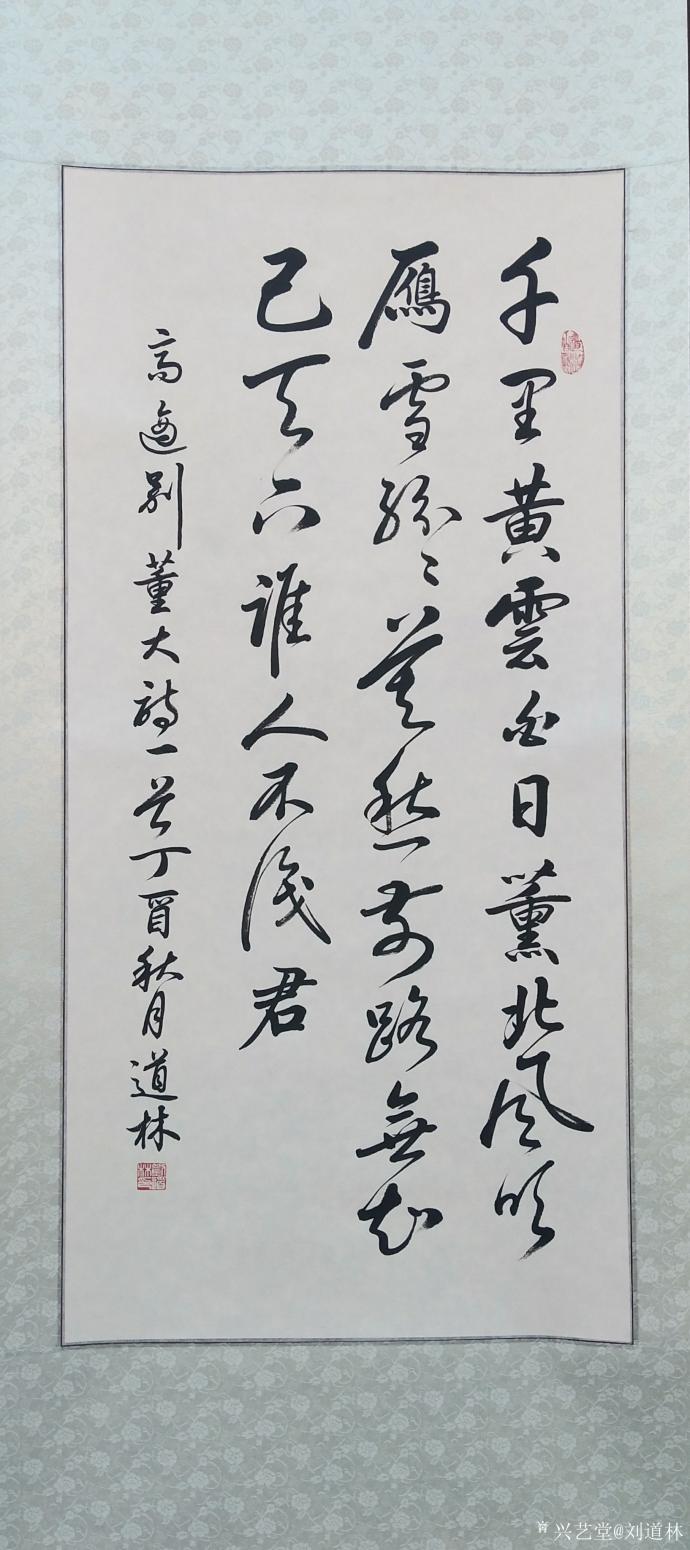 千里黄雲白日薰北風吹
鴈雪紛〻莫愁前路無知
己天下誰人不識君
高適別董大詩一首丁酉秋月道林
兴艺堂@刘道林